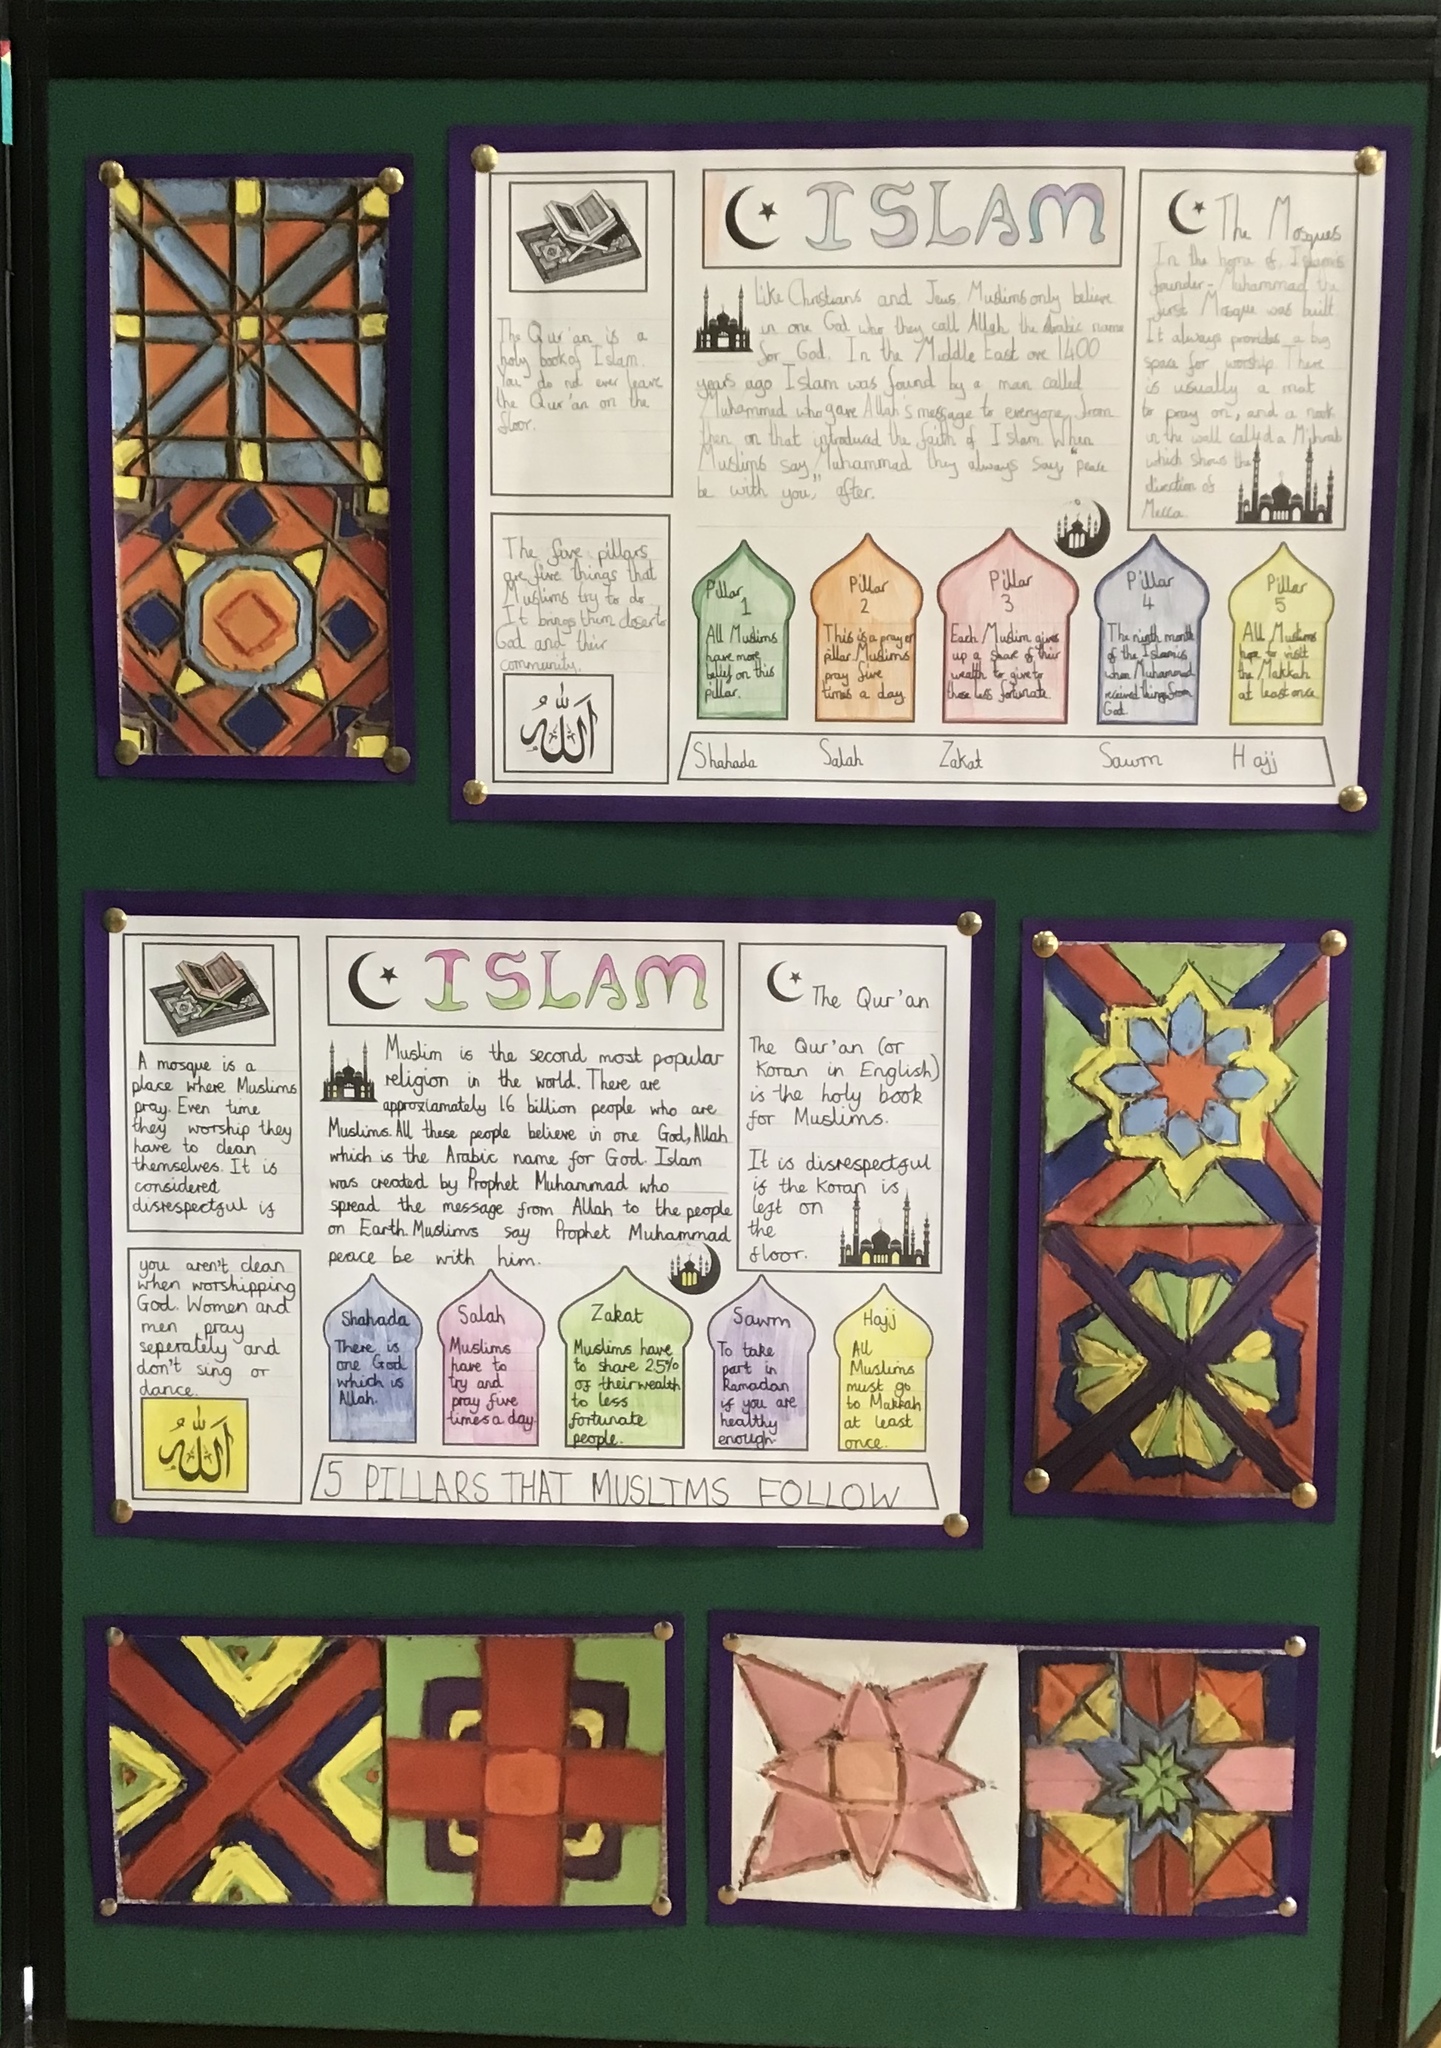 The Qur'an is a
holy book of Islam.
You do not ever leave
the Qur'an on the
floor.
The five pillars
are five things that
Muslims try to do
It brings them closer to
God and their
community.
الله
ISLAM
Like Christians and Jews, Muslims only believe
in one God who they call Allah the Arabic name
for God. In the Middle East ove 1400
years ago Islam was found by a man called
Muhammed who gave Allah's message to everyone from
then on that introduced the faith of Islam. When
Muslims say Muhammad they always say, "peace
be with you," after.
The Mosques
In the home of Islams
founder-Muhammad the
first Mosque was built.
It always provides a big
space for worship. There
is usually a mat
to pray on, and a nook
in the wall called a Mihrab
which shows the
direction of
Mecca.
Pillar
1
All Muslims
have more
belief on this
pillar.
Pillar
2
This is a prayer
pillar. Muslims
pray five
times a day.
Pillar
3
Each Muslim gives
up a share of their
wealth to give to
those less fortunate.
Pillar
4
The ninth month
of the Islamic is
when Muhammad
received things from
God.
Pillar
5
All Muslims
hope to visit
the Makkah
at least once.
Shahada Salah Zakat Sawm Hajj
A mosque is a
place where Muslims
pray. Even time
they worship they
have to clean
themselves. It is
considered
disrespectful if
you aren't clean
when worshipping
God. Women and
men pray
seperately and
don't sing or
dance.
الله
ISLAM
Muslim is the second most popular
religion in the world. There are
approxiamately 16 billion people who are
Muslims. All these people believe in one God, Allah
which is the Arabic name for God. Islam
was created by Prophet Muhammad who
spread the message from Allah to the people
on Earth. Muslims say Prophet Muhammad
peace be with him.
The Qur'an
The Qur'an (or
Koran in English)
is the holy book
for Muslims.
It is disrespectful
if the Koran is
left on
the
floor.
Shahada
There is
one God
which is
Allah.
Salah
Muslims
have to
try and
pray five
times a day.
Zakat
Muslims have
to share 2.5%
of their wealth
to less
fortunate
people.
Sawm
To take
part in
Ramadan
if you are
healthy
enough.
Hajj
All
Muslims
must go
to Makkah
at least
once.
5 PILLARS THAT MUSLIMS FOLLOW